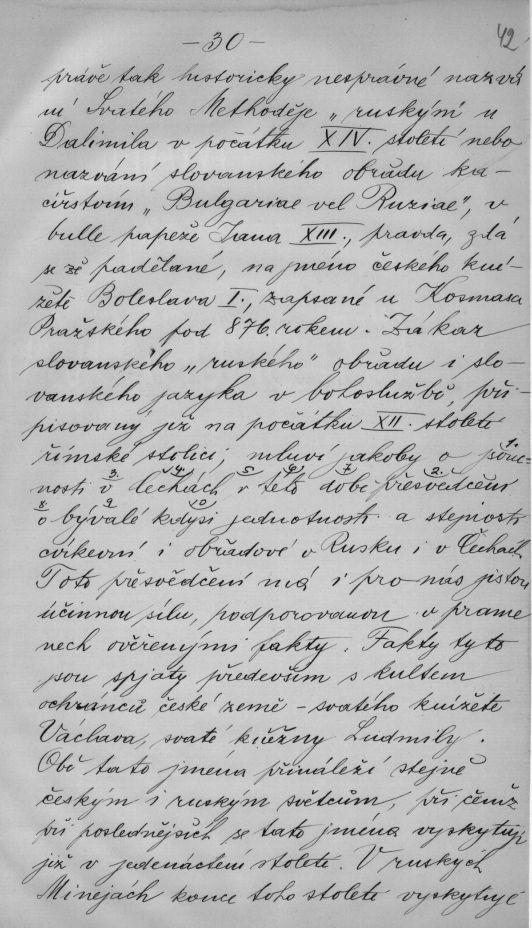 42
- 30 -
právě tak historicky nesprávné nazvá
ní Svatého Methoděje „ruským" u
Dalimila v počátku XIV. století nebo
nazvání slovanského obřadu ka-
cířstvím „Bulgariae vel Ruziae", v
bulle papeže Jana XIII., pravda, zdá
se že padělané, na jméno českého kní-
žete Boleslava I., zapsané u Kosmasa
Pražského pod 876. rokem. Zákaz
slovanského „ruského" obřadu i slo-
vanského jazyka v bohoslužbě, při-
pisovaný již na počátku XII. století
římské stolici, mluví jakoby o
nosti v Čechách v této době přesvědčení
o bývalé kdysi jednotnosti a stejnosti
církevní i obřadové v Rusku i v Čechách
Toto přesvědčení má i pro nás jistou
účinnou sílu, podporovanou v prame
nech ověřenými fakty. Fakty tyto
jsou spjaty především s kultem
ochránců české země - svatého knížete
Václava, svaté kněžny Ludmily.
Obě tato jména přináleží stejně
českým i ruským světcům, při čemž
při poslednějších se tato jména vyskytují
již v jedenáctém století. V ruských
Minejách konce toho století vyskytují